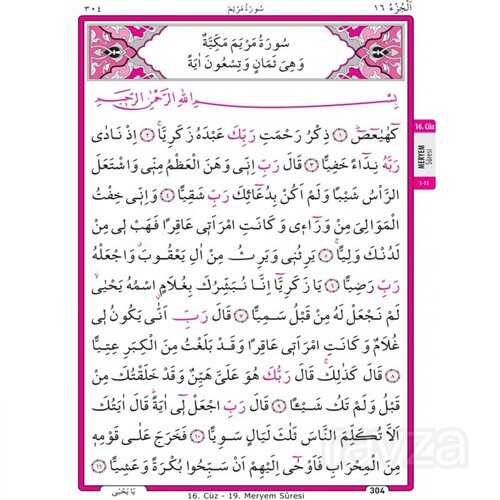 اَلْجُزْءُ ١٦ سُورَةُ مَرْيَمَ ٣٠٤
سُورَةُ مَرْيَمَ مَكِّيَّةٌ
وَهِيَ ثَمَانٍ وَتِسْعُونَ اٰيَةً
بِسْمِ اللّٰهِ الرَّحْمٰنِ الرَّحِيمِ
كٓهٰيٰعٓصٓ ﴿١﴾ ذِكْرُ رَحْمَتِ رَبِّكَ عَبْدَهُ زَكَرِيَّا ﴿٢﴾ اِذْ نَادٰى
رَبَّهُ نِدَٓاءً خَفِيًّا ﴿٣﴾ قَالَ رَبِّ اِنّ۪ى وَهَنَ الْعَظْمُ مِنّ۪ى وَاشْتَعَلَ
الرَّأْسُ شَيْبًا وَلَمْ اَكُنْ بِدُعَٓائِكَ رَبِّ شَقِيًّا ﴿٤﴾ وَاِنّ۪ى خِفْتُ
الْمَوَالِىَ مِنْ وَرَٓاء۪ى وَكَانَتِ امْرَاَت۪ى عَاقِرًا فَهَبْ ل۪ى مِنْ
لَدُنْكَ وَلِيًّا ﴿٥﴾ يَرِثُن۪ى وَيَرِثُ مِنْ اٰلِ يَعْقُوبَ وَاجْعَلْهُ
رَبِّ رَضِيًّا ﴿٦﴾ يَا زَكَرِيَّٓا اِنَّا نُبَشِّرُكَ بِغُلَامٍ اسْمُهُ يَحْيٰى
لَمْ نَجْعَلْ لَهُ مِنْ قَبْلُ سَمِيًّا ﴿٧﴾ قَالَ رَبِّ اَنّٰى يَكُونُ ل۪ى
غُلَامٌ وَكَانَتِ امْرَاَت۪ى عَاقِرًا وَقَدْ بَلَغْتُ مِنَ الْكِبَرِ عِتِيًّا
﴿٨﴾ قَالَ كَذٰلِكَ قَالَ رَبُّكَ هُوَ عَلَىَّ هَيِّنٌ وَقَدْ خَلَقْتُكَ مِنْ
قَبْلُ وَلَمْ تَكُ شَيْـًٔا ﴿٩﴾ قَالَ رَبِّ اجْعَلْ ل۪ٓى اٰيَةً قَالَ اٰيَتُكَ
اَلَّا تُكَلِّمَ النَّاسَ ثَلٰثَ لَيَالٍ سَوِيًّا ﴿١٠﴾ فَخَرَجَ عَلٰى قَوْمِه۪
مِنَ الْمِحْرَابِ فَاَوْحٰٓى اِلَيْهِمْ اَنْ سَبِّحُوا بُكْرَةً وَعَشِيًّا ﴿١١﴾
16. Cüz
MERYEM
Sûresi
1-11
يَا يَحْيٰى 304
16. Cüz - 19. Meryem Sûresi
ravza